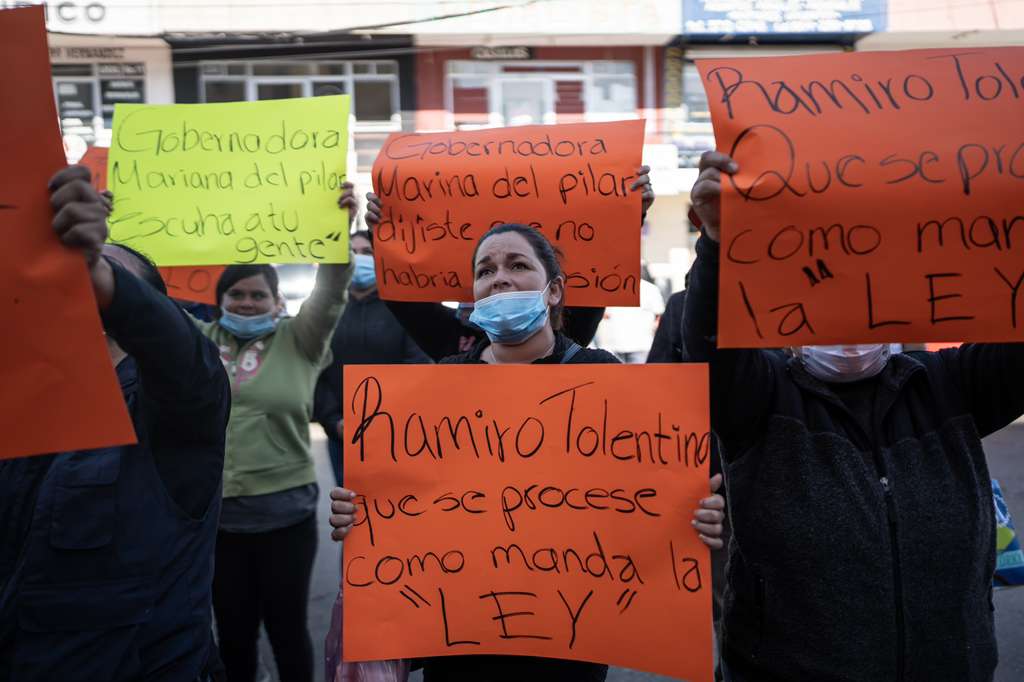 Gobernadora
Mariana del pilar
Escuha a tu
gente"
Gobernadora
Marina del pilar
dijiste que no
habria sión
Ramiro Tole
Que se proc
como man
la "LEY
Ramiro Tolentino
que se procese
como manda la
"LEY"